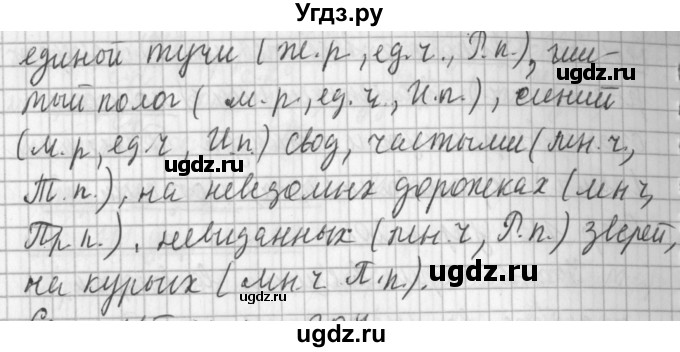 Угдз.ру
единой тучи (ж.р, ед.ч., Р.п.), ши-
тый полог (м.р, ед.ч., И.п.), синий
(м.р, ед.ч, Ип) свод, частыми (мн.ч.,
Т.п.), на неведомых дорожках (мн ч,
Пр.п.), невиданных (мн.ч, Р.п.) зверей,
на курьих (мн.ч П.п.).
ugdz.ru
ugdz.ru
ugdz.ru
ugdz.ru
ugdz.ru
ugdz.ru